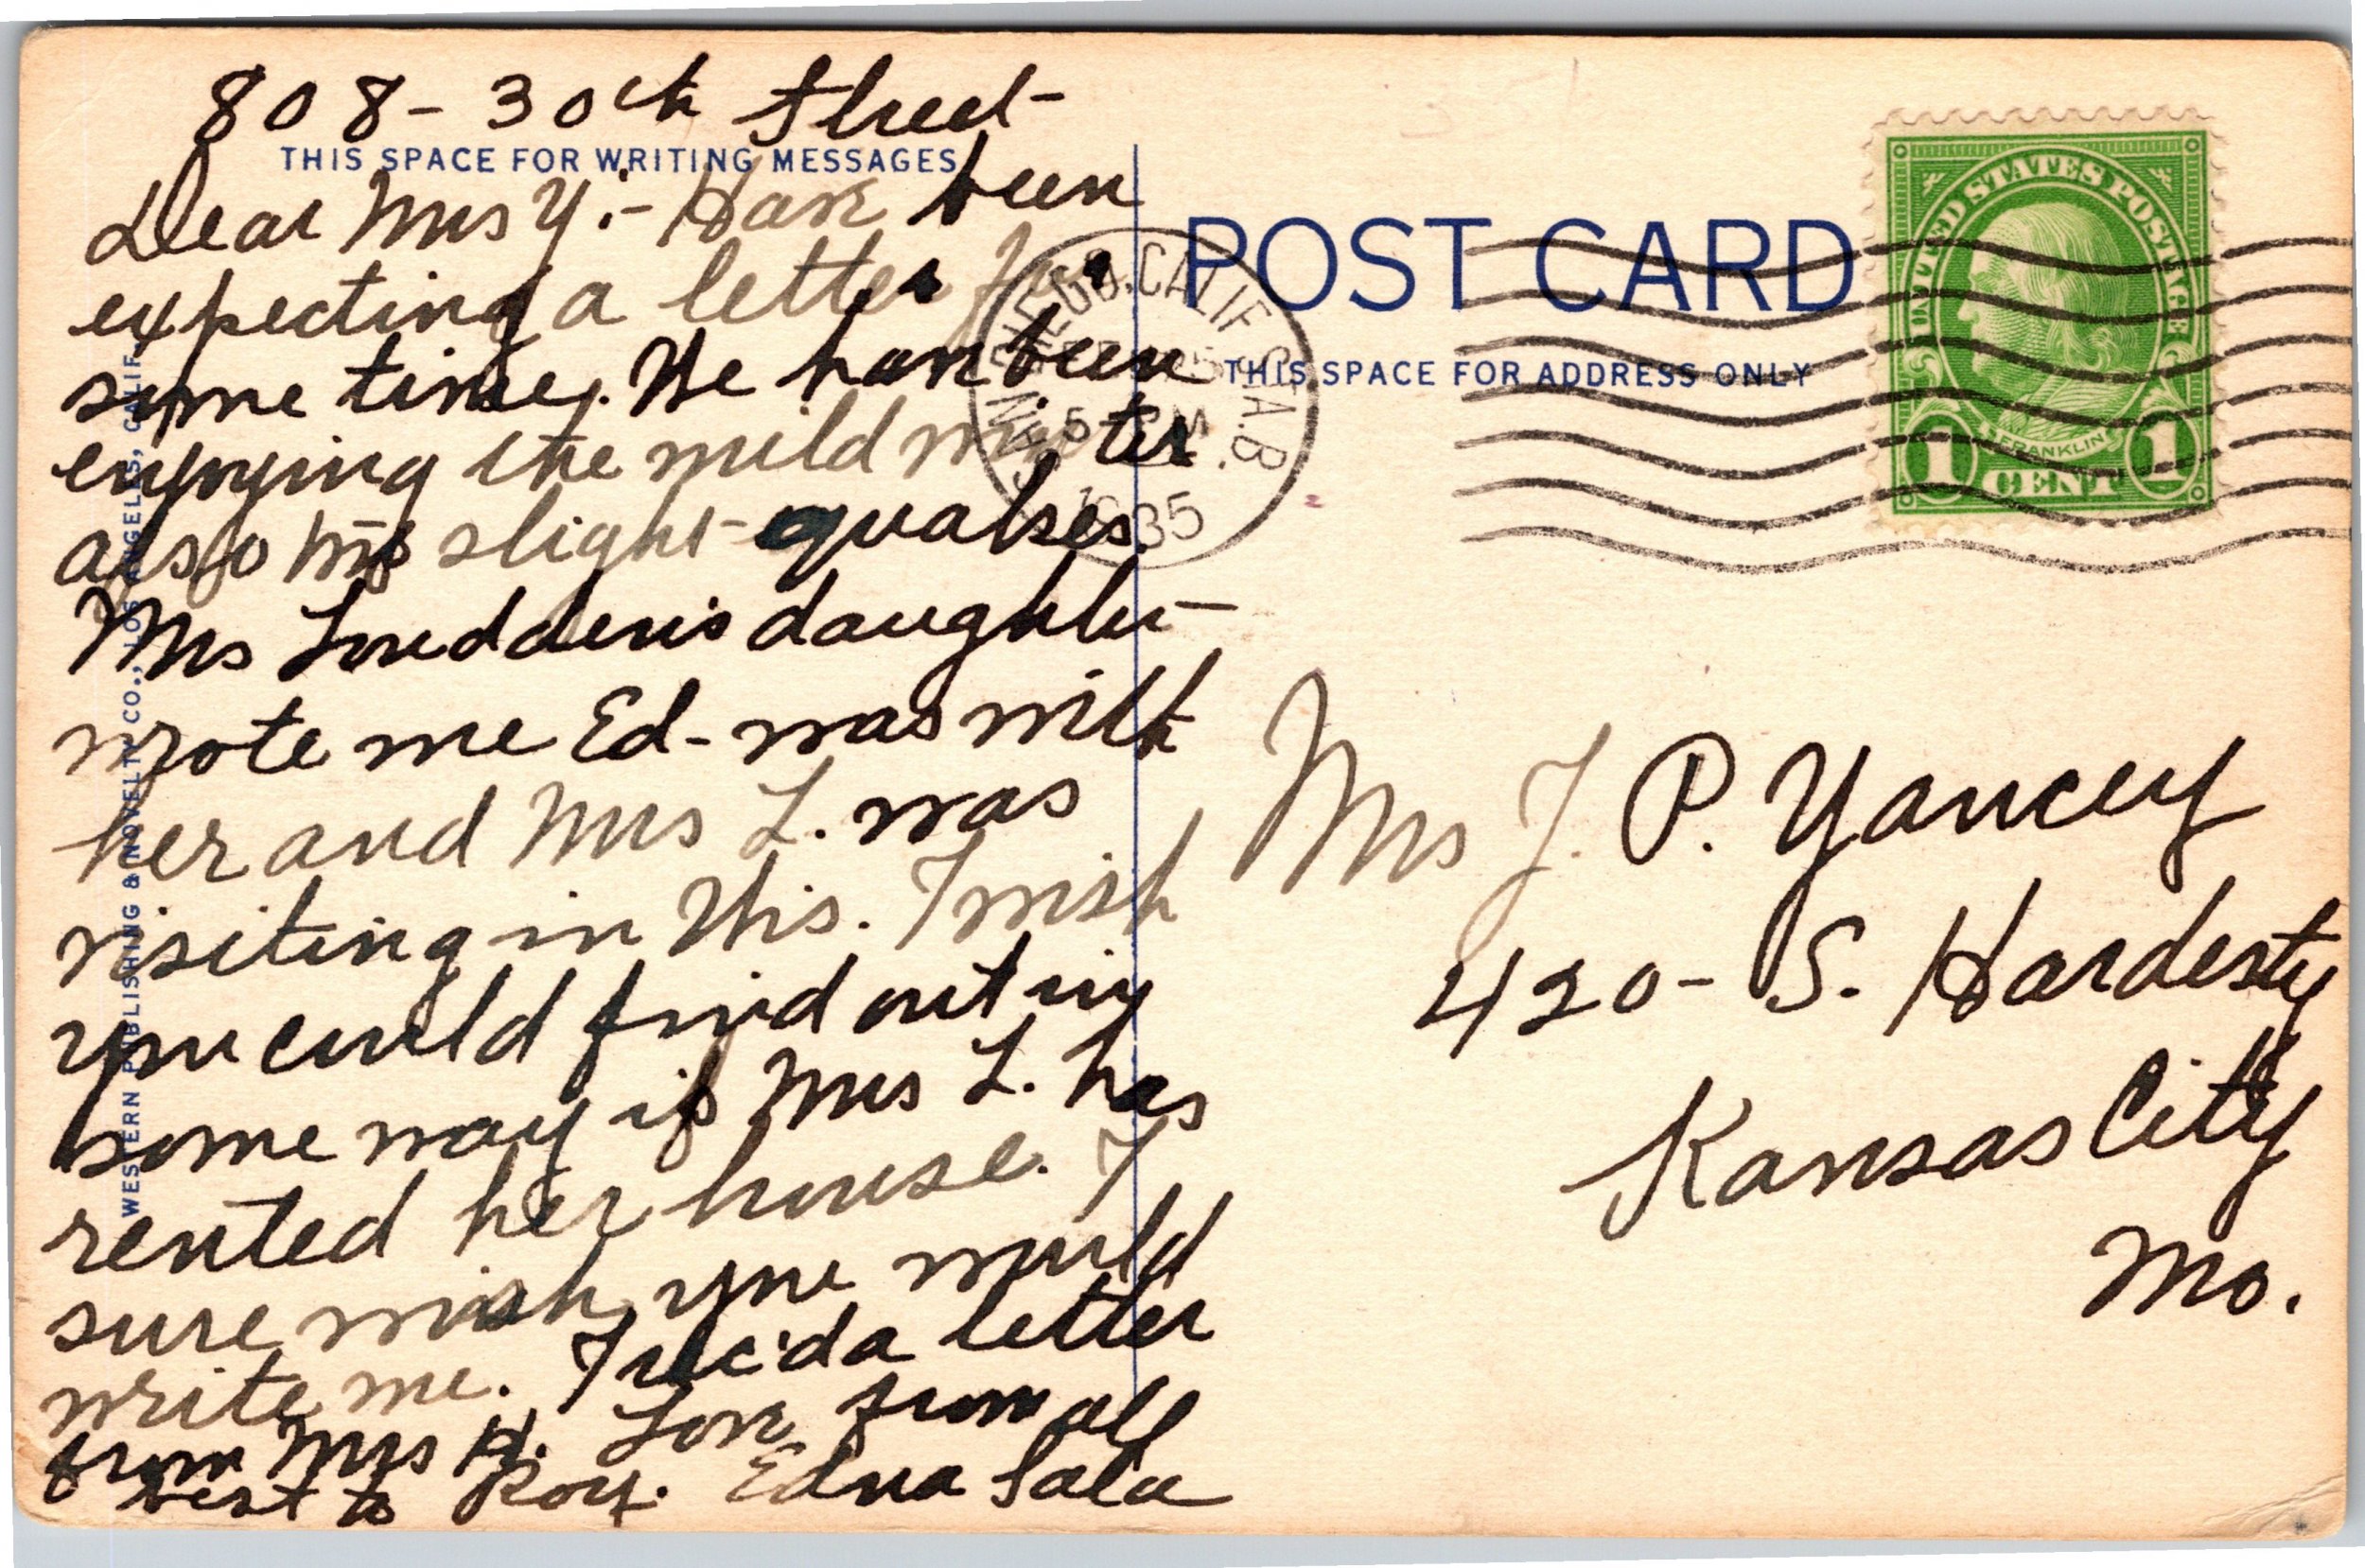 808 - 30th Street -
THIS SPACE FOR WRITING MESSAGES
Dear Mrs Y:- Have been
expecting a letter for
some time. We have been
enjoying the mild winter
also the slight - quakes.
Mrs Loudden's daughter -
wrote me Ed - was with
her and Mrs L. was
visiting in Wis. I wish
you could find out in
some way if Mrs L. has
rented her house. I
sure wish you would
write me. I rec'd a letter
from Mrs H. Love from all
best to Roy. Edna Sala
WESTERN PUBLISHING & NOVELTY CO., LOS ANGELES, CALIF.
POST CARD
THIS SPACE FOR ADDRESS ONLY
DIEGO, CALIF.
5 PM
1935
UNITED STATES POSTAGE
FRANKLIN
1 CENT 1
Mrs J. P. Yancey
420 - S. Hardesty
Kansas City
Mo.